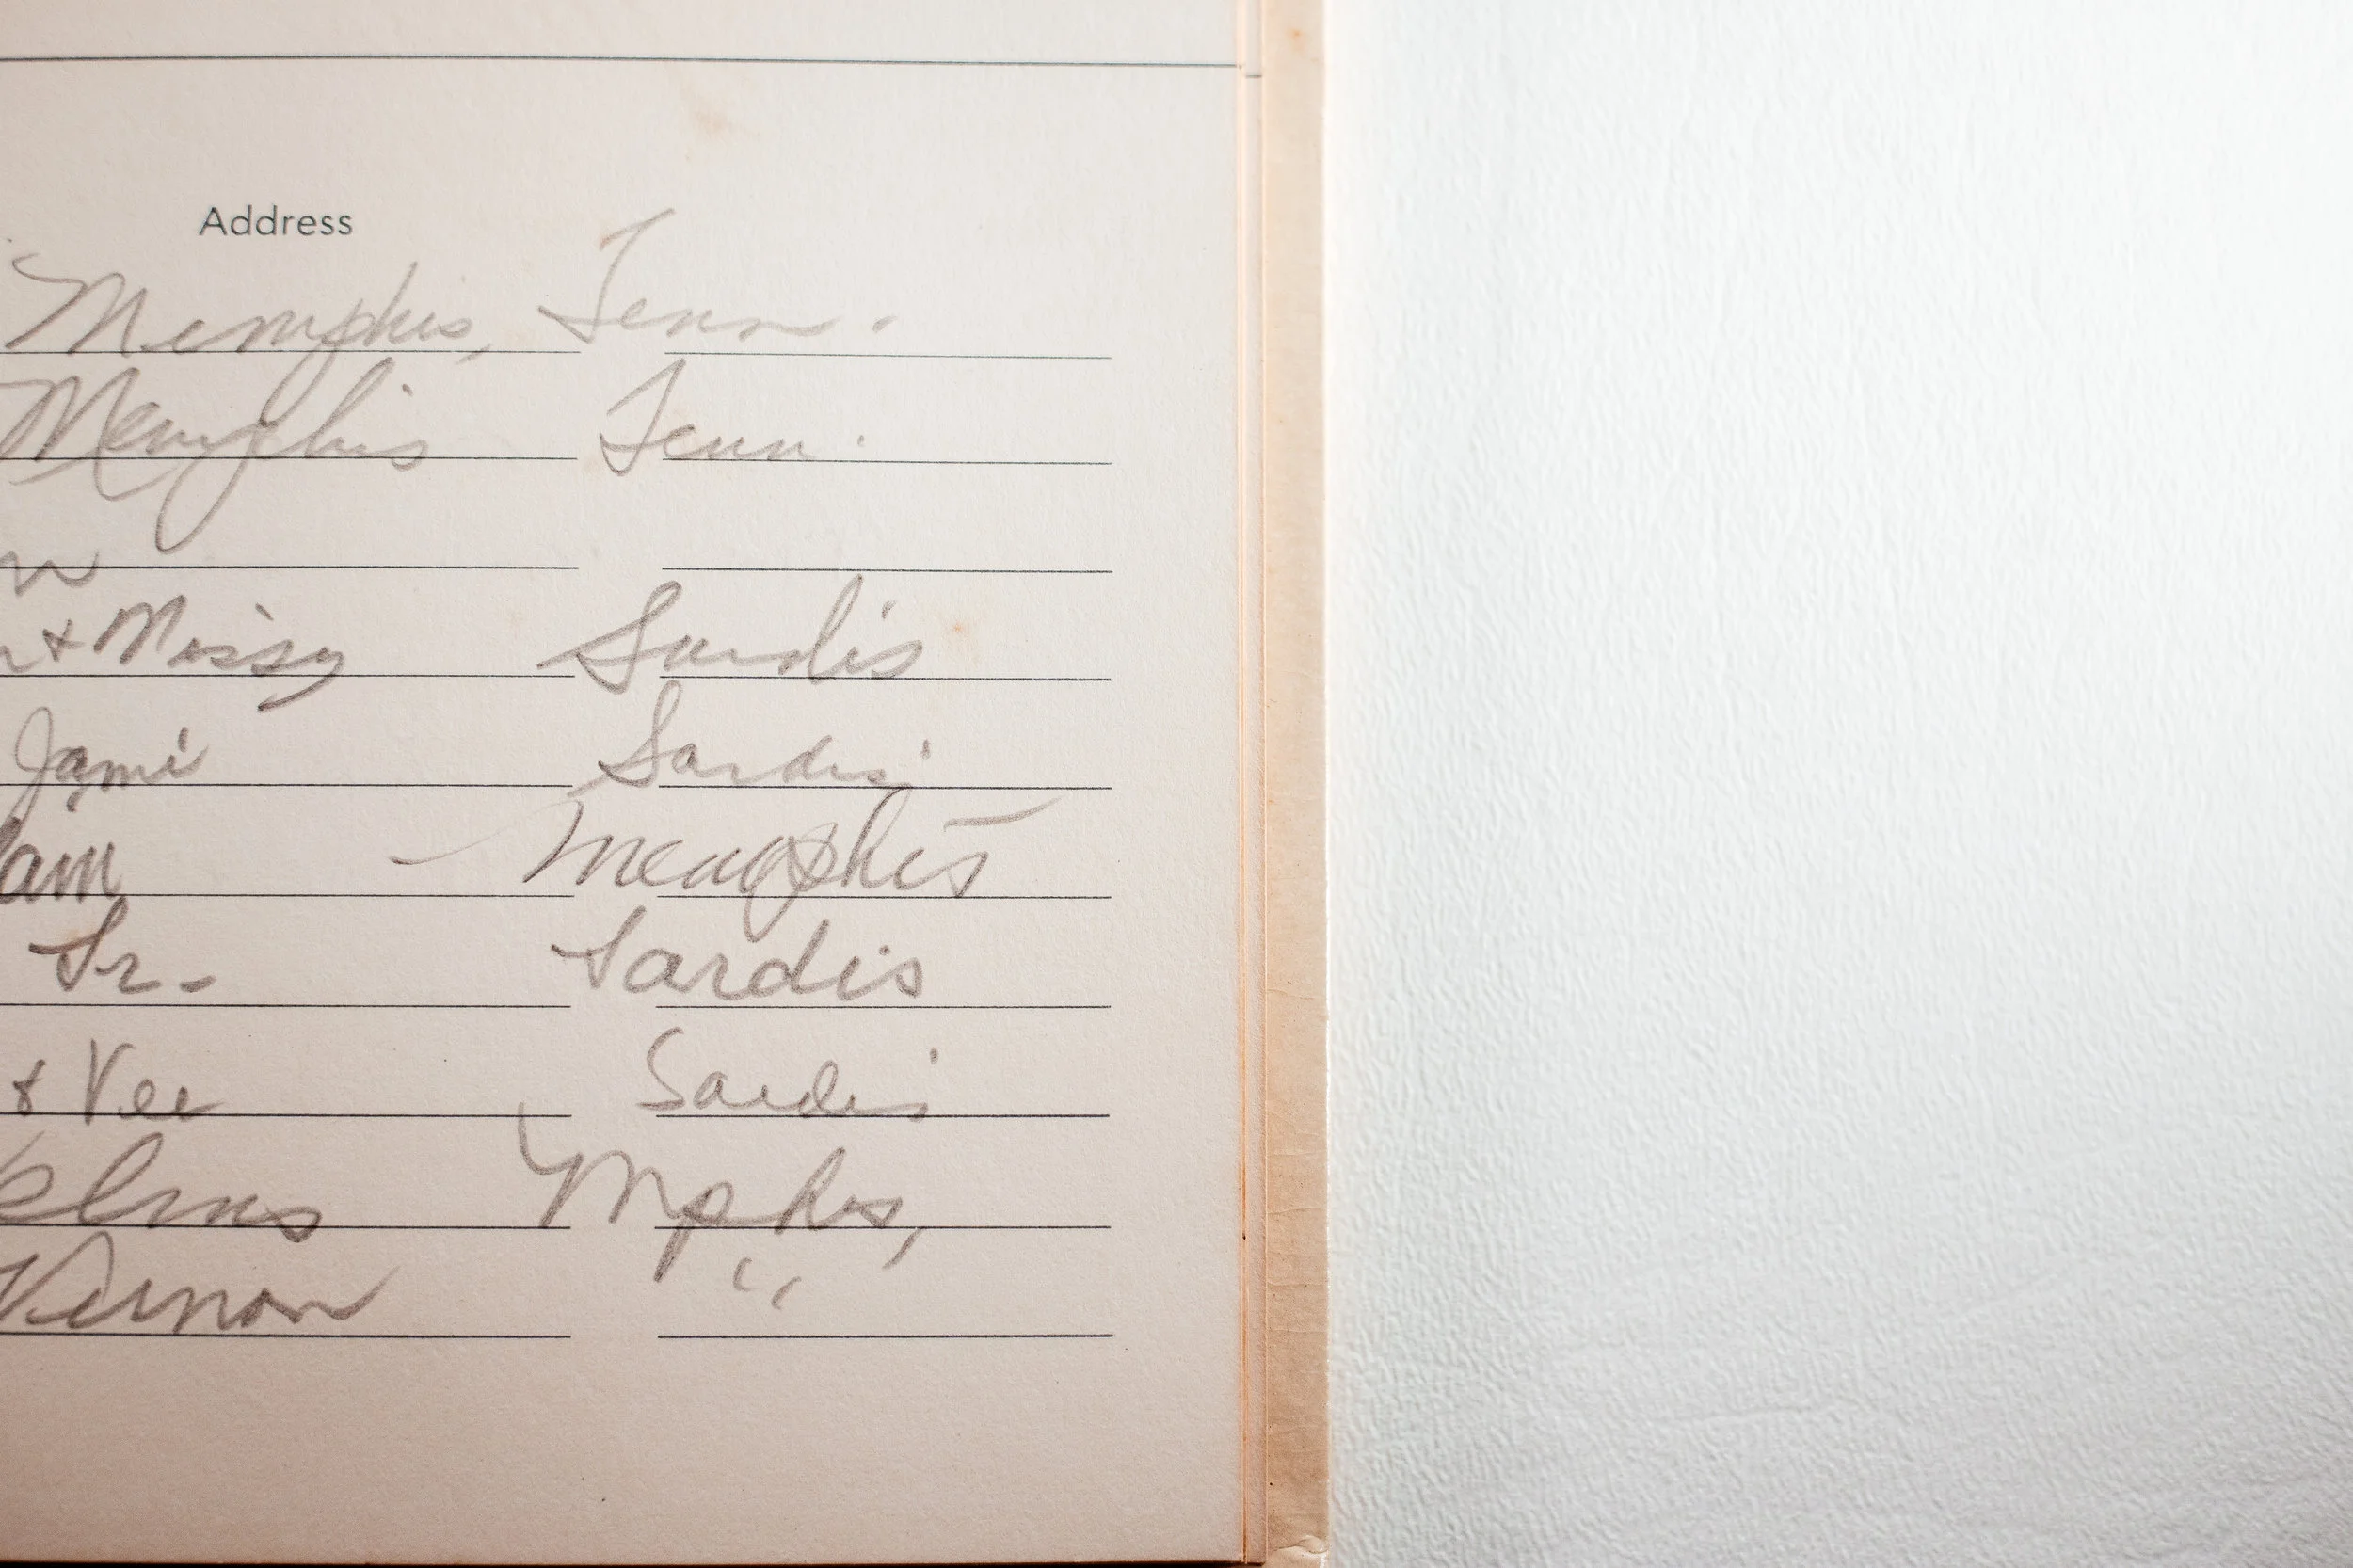 Address
Memphis, Tenn.
Memphis Tenn.
& Missy Sardis
Jami Sardis
am - Memphis
Sr. Sardis
& Vee Sardis
Mphis,
Vernon "